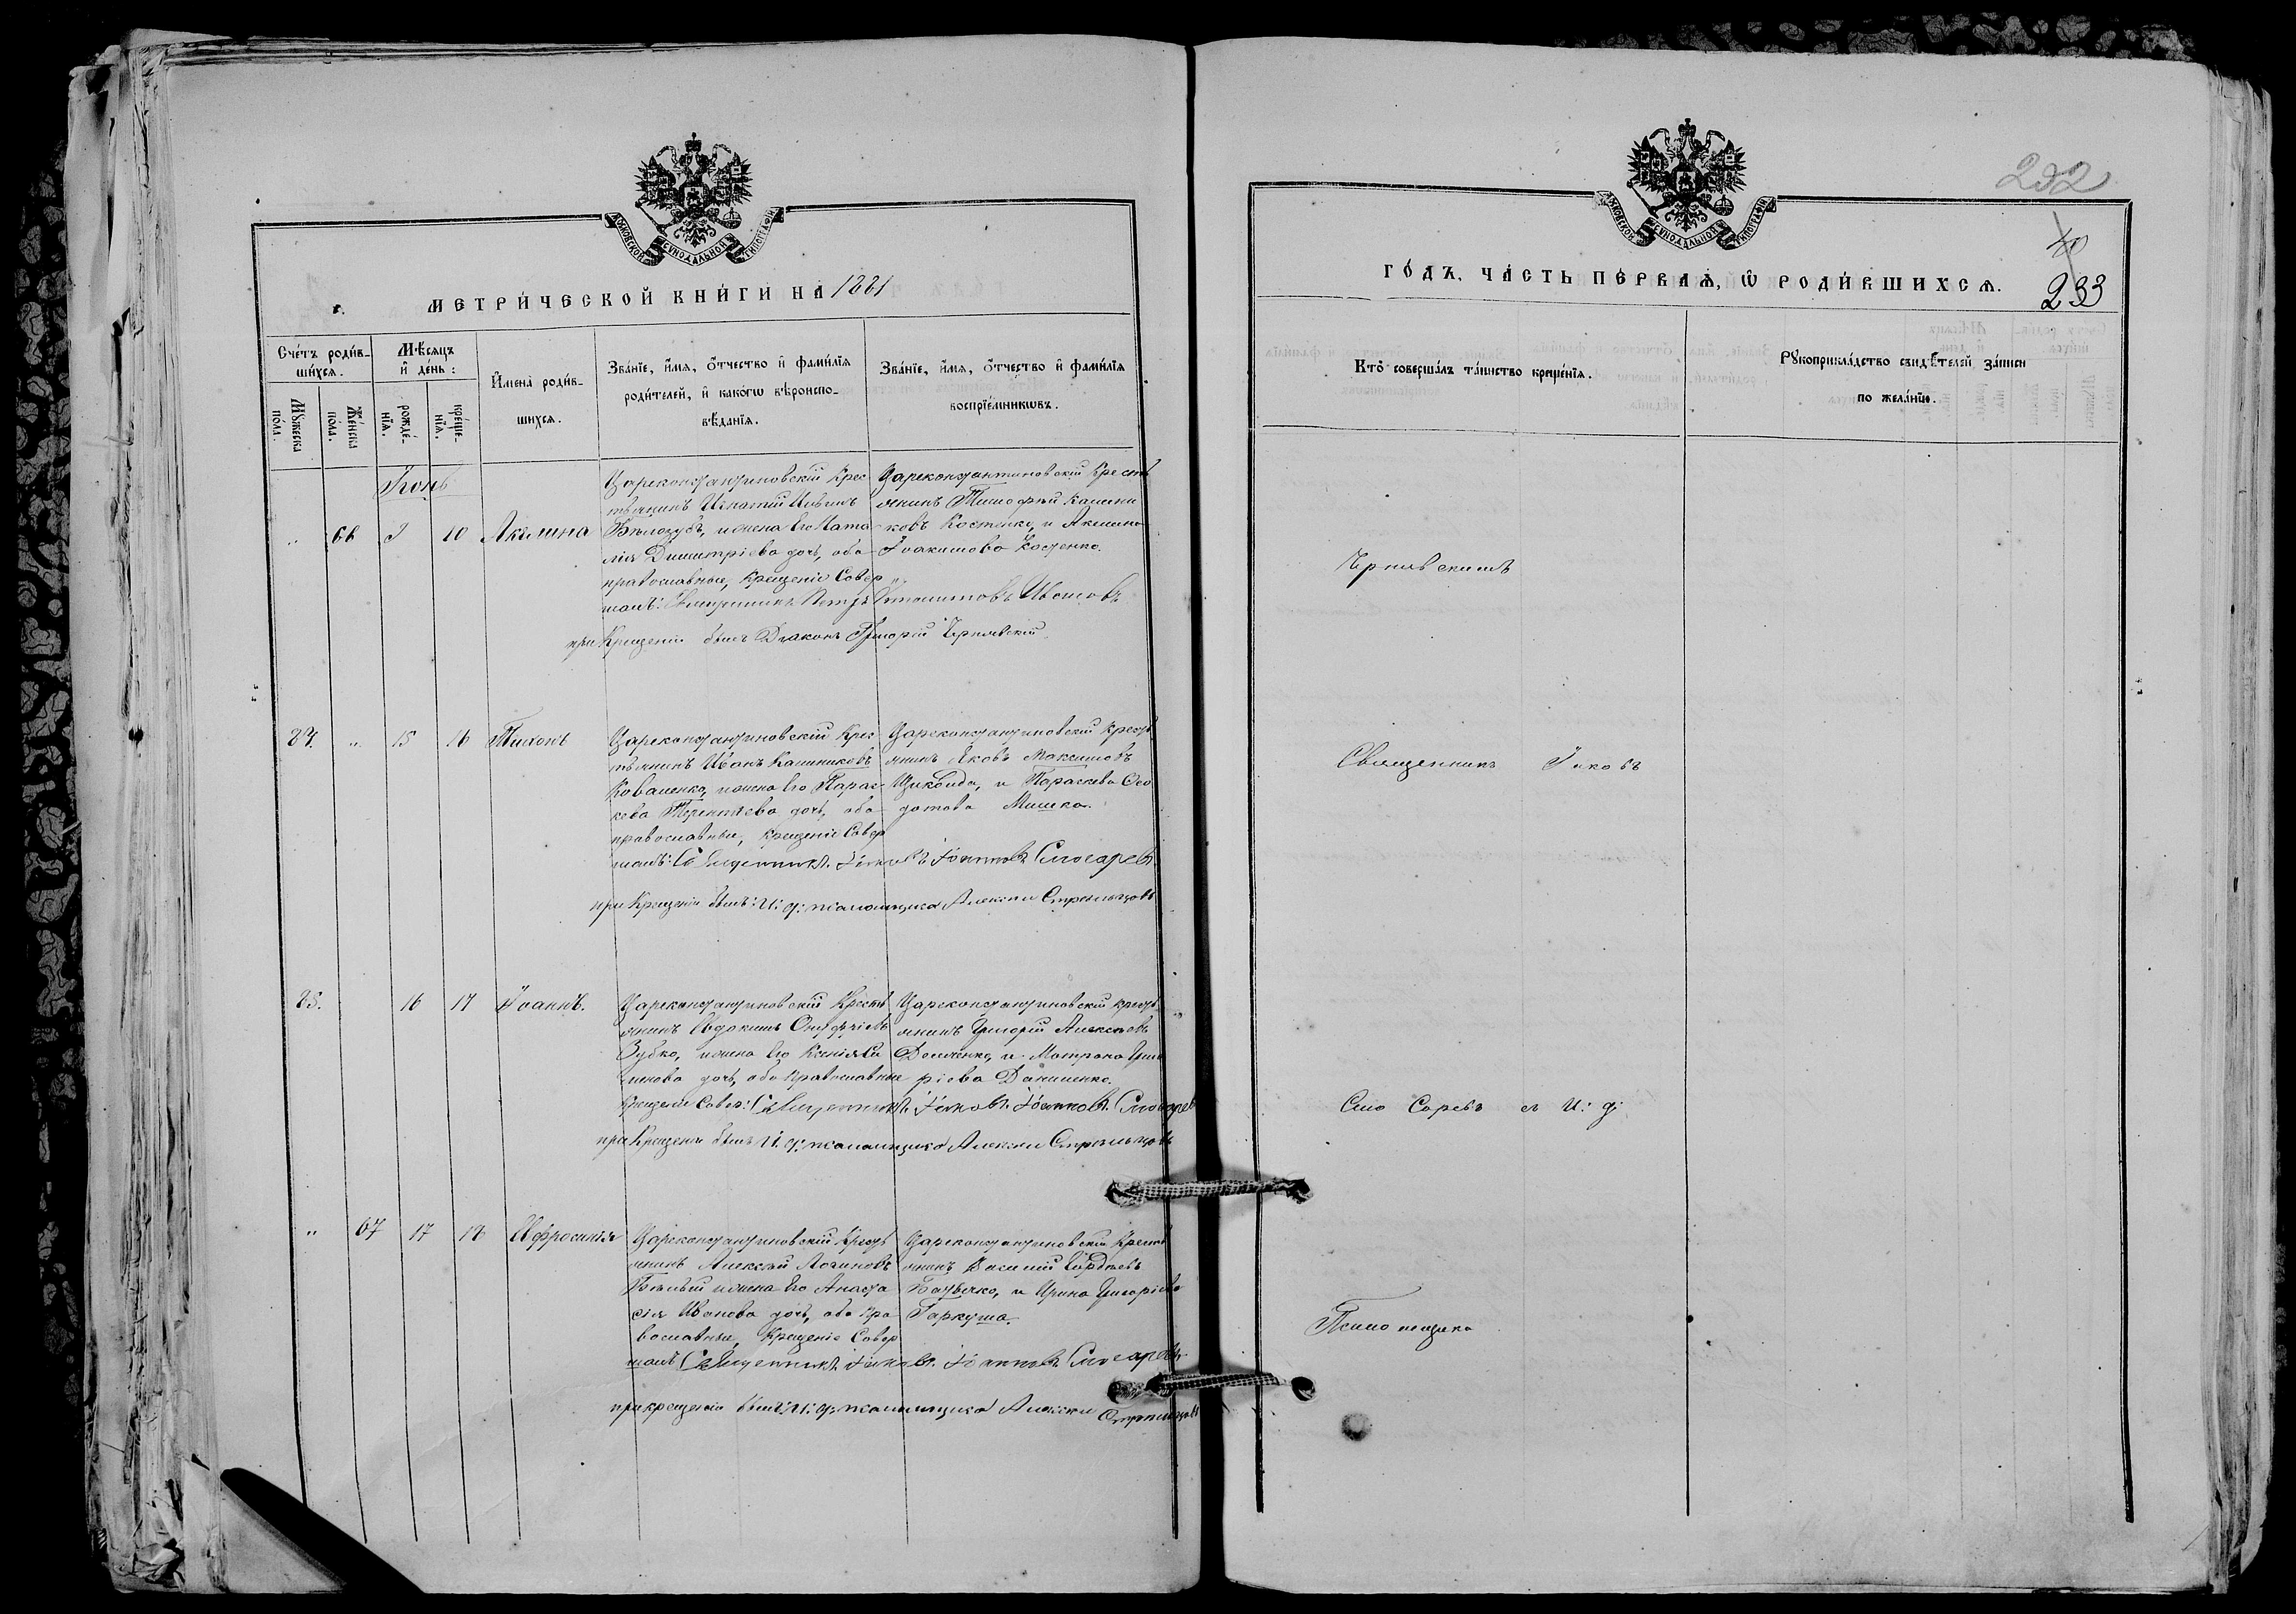 МОСКОВСКОЙ СУНОДАЛЬНОЙ ТИПОГРАФІИ
МЕТРИЧЕСКОЙ КНИГИ НА 1881
Счетъ родив-
шихся.
Мѣсяцъ
и день:
Имена родив-
шихся.
Званіе, имя, отчество и фамилія
родителей, и какогω вѣроиспо-
вѣданія.
Званіе, имя, отчество и фамилія
воспріемникωвъ.
Мꙋжеска
пола.
Женска
пола.
рожде-
нія.
креще-
нія.
Іюнь
„ 66 10 Акелина
Цареконстантиновскій Крес
тьянинъ Игнатій
Бѣлозубъ, и жена его Ната
лія Димитріева дочь, оба
православные, Крещеніе Совер
шалъ: Священникъ Петръ Ивановъ
при Крещеніи былъ Діаконъ Григорій Чернявскій
Цареконстантиновскій Кресть
янинъ Тимофѣй Калини
ковъ Костенко, и Акелина
Іоакимова Костенко.
„ 15 16 Тихонъ
Цареконстантиновскій Крес
тьянинъ Иванъ Калиниковъ
Коваленко, и жена его Парас
кева Терентіева дочь, оба
православные, Крещеніе Совер
шалъ: Священникъ Іаковъ Іоанновъ Слюсаревъ
при Крещеніи былъ: И: д: псаломщика Алексѣй Стрельцовъ
Цареконстантиновскій Кресть
янинъ Яковъ Максимовъ
и Параскева Ѳео
дотова Мишка.
85. 16 17 Іоаннъ.
Цареконстантиновскій Кресть
янинъ Евдокимъ Онуфріевъ
Зубко, и жена его Ксенія
дочь, оба Православные
Крещеніе Совер: Священникъ Іаковъ Іоанновъ Слюсаревъ
при Крещеніи былъ И. д: псаломщика Алексѣй Стрельцовъ
Цареконстантиновскій кресть
янинъ Григорій Алексѣевъ
Демченко, и Матрона Григо
ріева Даниленко.
„ 67 17 18 Ефросинія
Цареконстантиновскій Кресть
янинъ Алексѣй Логиновъ
Бѣлый и жена его Анаста
сія Иванова дочь, оба Пра
вославные, Крещеніе Совер
шалъ Священникъ Іаковъ Іоанновъ Слюсаревъ
при крещеніи былъ: И: д: псаломщика Алексѣй Стрельцовъ
Цареконстантиновскій Кресть
янинъ Василій Гордѣевъ
и Ирина Григоріева
Гаркуша.
232
МОСКОВСКОЙ СУНОДАЛЬНОЙ ТИПОГРАФІИ
ГОДЪ, ЧАСТЬ ПЕРВАЯ, Ѡ РОДИВШИХСЯ.
233
Кто совершалъ таинство крещенія.
Рꙋкоприкладство свидѣтелей записи
по желанію.
Чернявскимъ
Священникъ Іаковъ
Слю Саревъ съ И: д:
Псаломщика